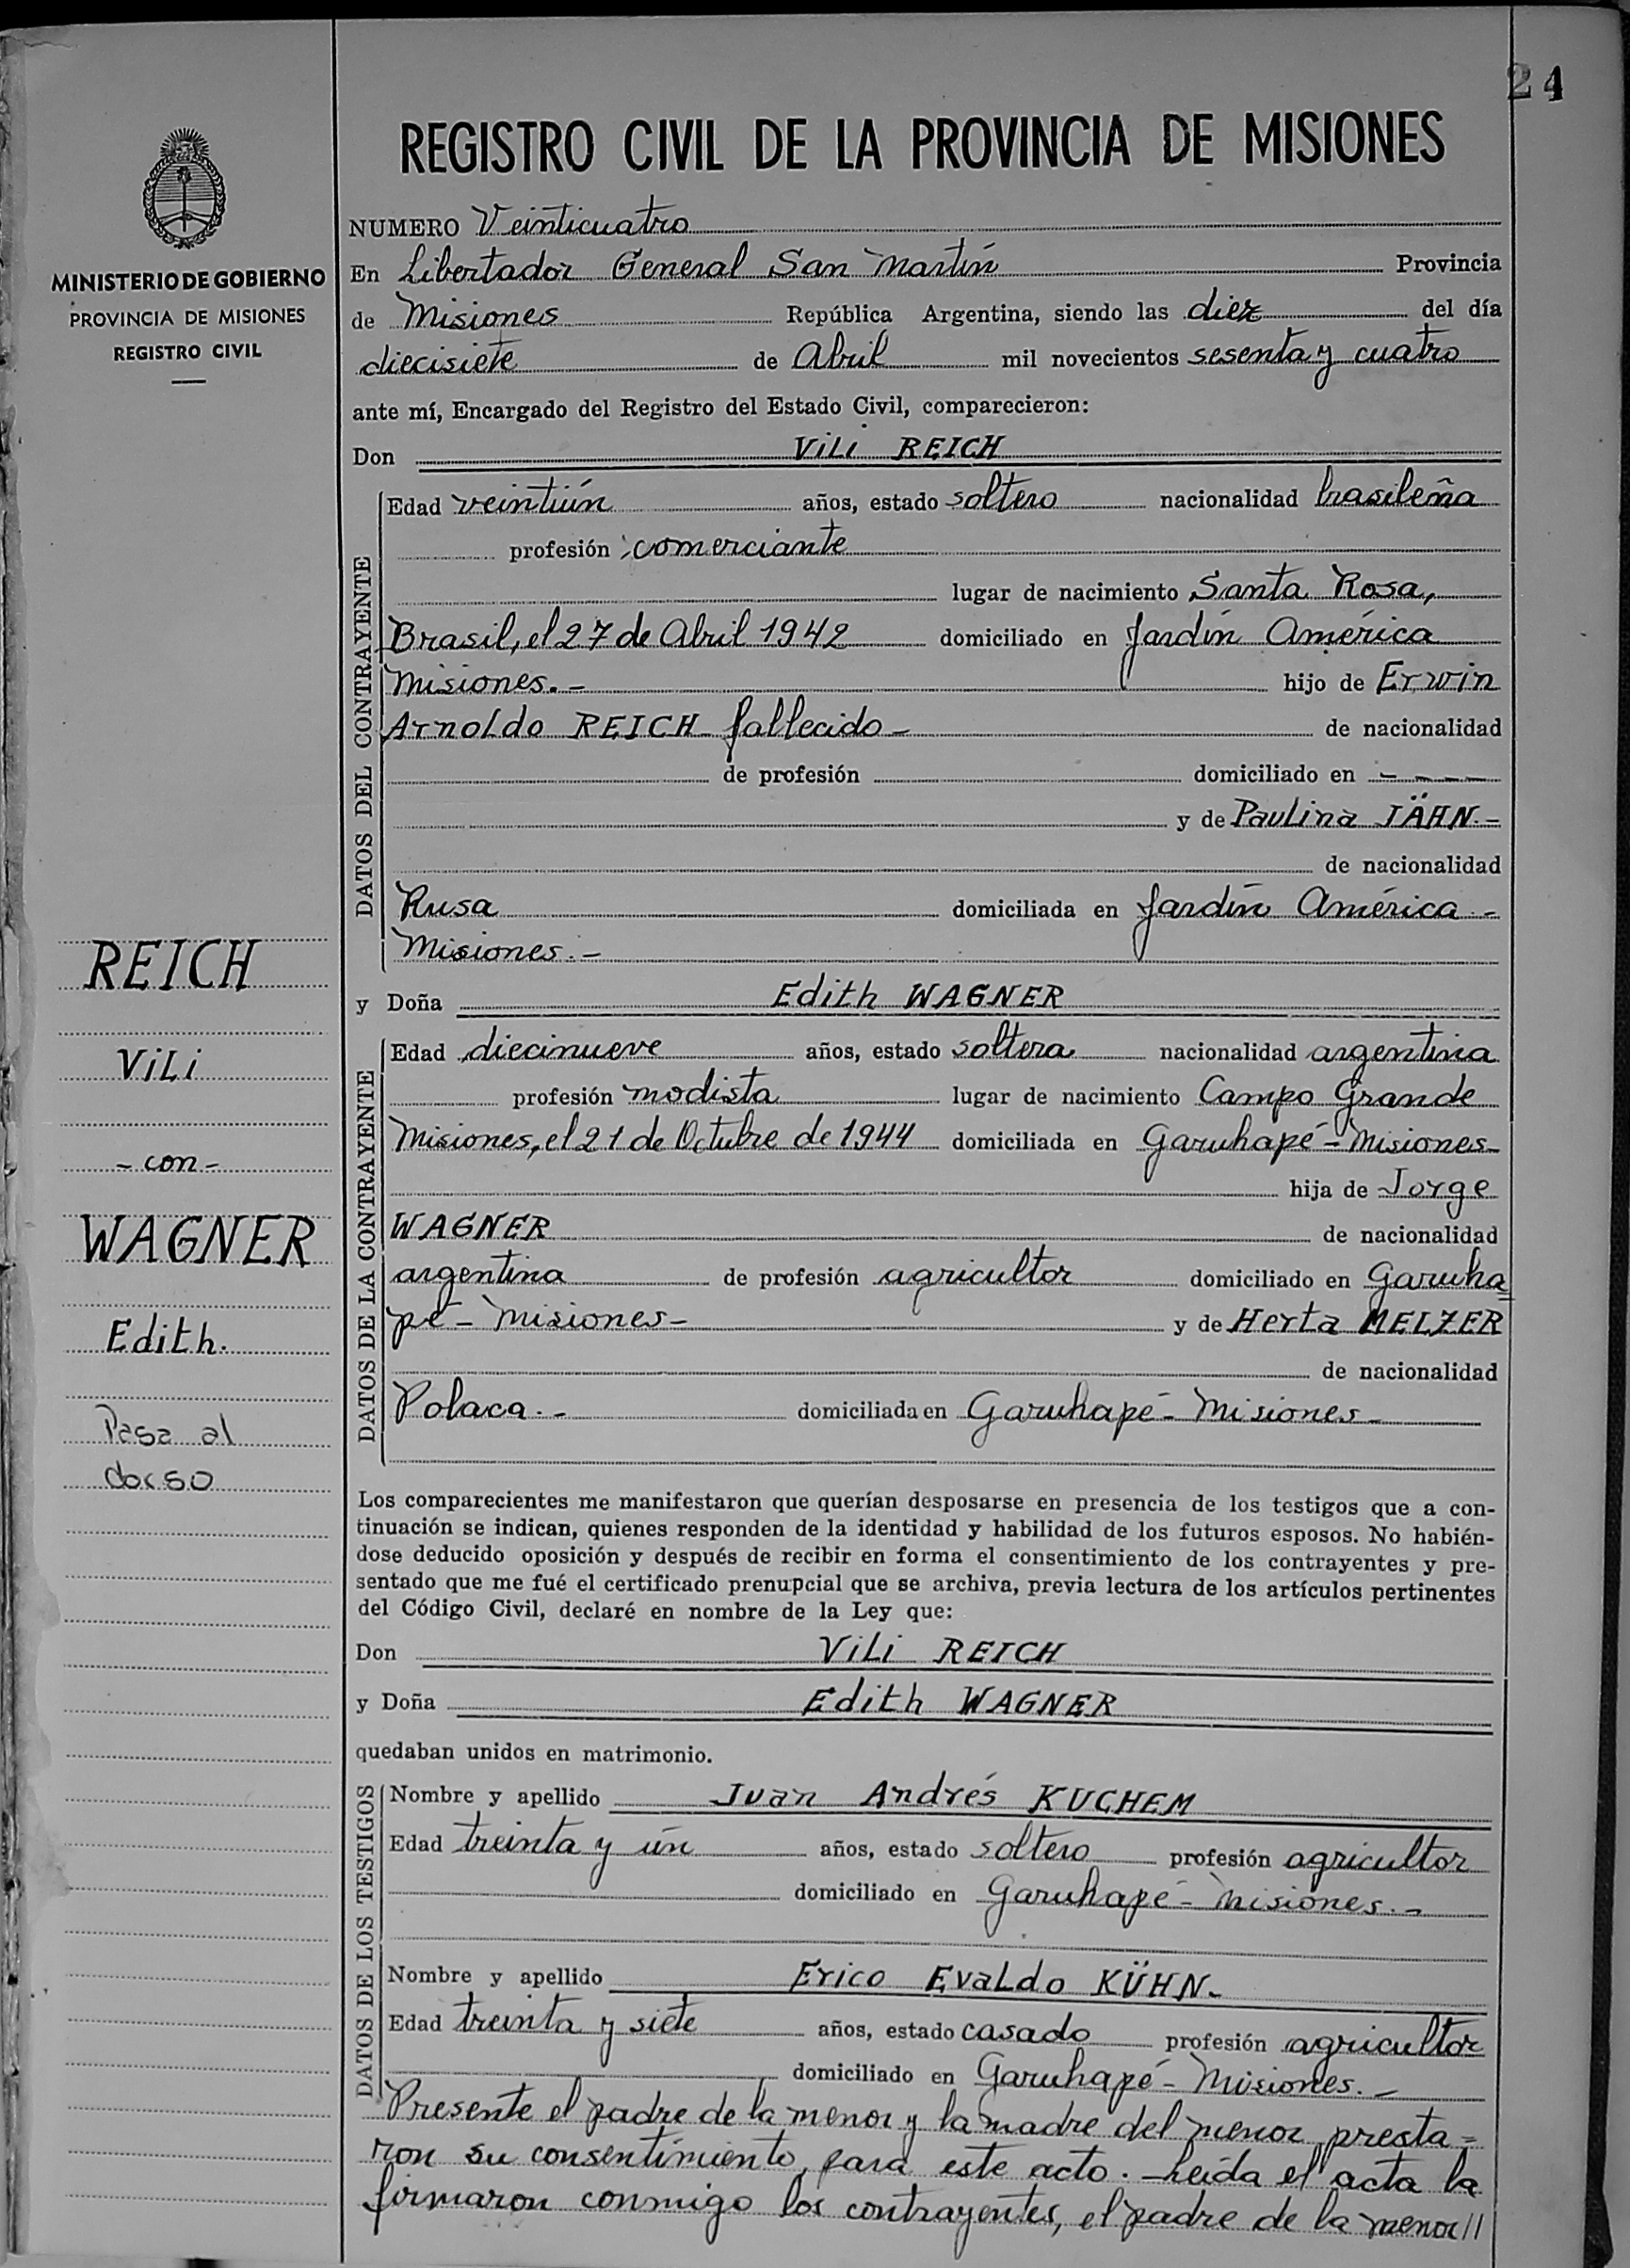 24
REGISTRO CIVIL DE LA PROVINCIA DE MISIONES
MINISTERIO DE GOBIERNO
PROVINCIA DE MISIONES
REGISTRO CIVIL
NUMERO Veinticuatro
En Libertador General San Martín Provincia
de Misiones República Argentina, siendo las diez del día
diecisiete de Abril mil novecientos sesenta y cuatro
ante mí, Encargado del Registro del Estado Civil, comparecieron:
Don Vili REICH
DATOS DEL CONTRAYENTE
Edad veintiún años, estado soltero nacionalidad brasileña
profesión comerciante
lugar de nacimiento Santa Rosa,
Brasil, el 27 de Abril 1942 domiciliado en Jardín América
Misiones.- hijo de Erwin
Arnoldo REICH fallecido- de nacionalidad
de profesión domiciliado en - - - -
y de Paulina JÄHN.-
de nacionalidad
Rusa domiciliada en Jardín América.-
Misiones.-
y Doña Edith WAGNER
DATOS DE LA CONTRAYENTE
Edad diecinueve años, estado soltera nacionalidad argentina
profesión modista lugar de nacimiento Campo Grande
Misiones, el 21 de Octubre de 1944 domiciliada en Garuhapé-Misiones-
hija de Jorge
WAGNER de nacionalidad
argentina de profesión agricultor domiciliado en Garuha=
pé-Misiones- y de Herta MELZER
de nacionalidad
Polaca.- domiciliada en Garuhapé-Misiones-
REICH
Vili
-con-
WAGNER
Edith.
Pasa al
dorso
Los comparecientes me manifestaron que querían desposarse en presencia de los testigos que a con-
tinuación se indican, quienes responden de la identidad y habilidad de los futuros esposos. No habién-
dose deducido oposición y después de recibir en forma el consentimiento de los contrayentes y pre-
sentado que me fué el certificado prenupcial que se archiva, previa lectura de los artículos pertinentes
del Código Civil, declaré en nombre de la Ley que:
Don Vili REICH
y Doña Edith WAGNER
quedaban unidos en matrimonio.
DATOS DE LOS TESTIGOS
Nombre y apellido Juan Andrés KUCHEM
Edad treinta y ún años, estado soltero profesión agricultor
domiciliado en Garuhapé-Misiones.-
Nombre y apellido Erico Evaldo KÜHN.
Edad treinta y siete años, estado casado profesión agricultor
domiciliado en Garuhapé-Misiones.-
Presente el padre de la menor y la madre del menor, presta=
ron su consentimiento para este acto.-Leída el acta la
firmaron conmigo los contrayentes, el padre de la menor//